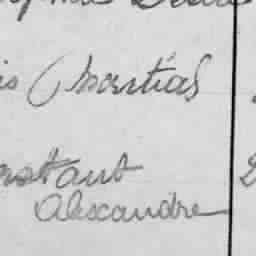 is Martial
nstant
Alexandre